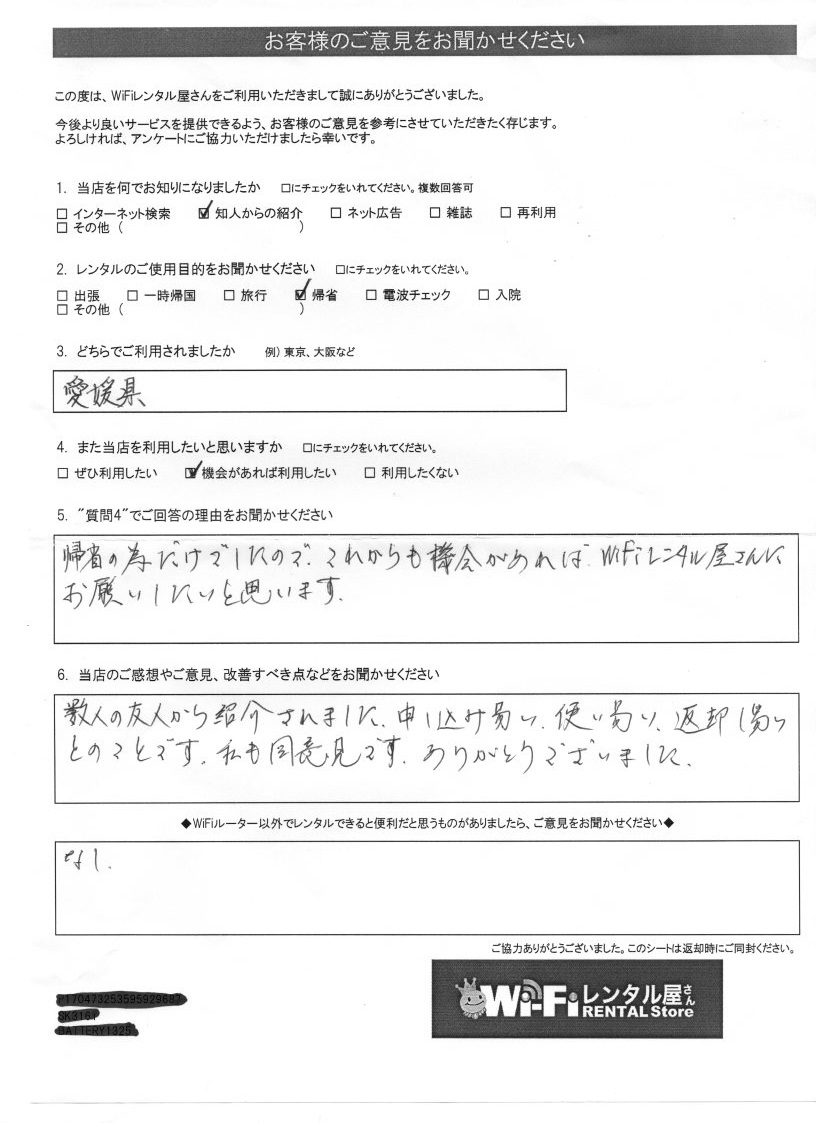 お客様のご意見をお聞かせください
この度は、WiFiレンタル屋さんをご利用いただきまして誠にありがとうございました。
今後より良いサービスを提供できるよう、お客様のご意見を参考にさせていただきたく存じます。
よろしければ、アンケートにご協力いただけましたら幸いです。
1. 当店を何でお知りになりましたか □にチェックをいれてください。複数回答可
□ インターネット検索 ☑ 知人からの紹介 □ ネット広告 □ 雑誌 □ 再利用
□ その他 ( )
2. レンタルのご使用目的をお聞かせください □にチェックをいれてください。
□ 出張 □ 一時帰国 □ 旅行 ☑ 帰省 □ 電波チェック □ 入院
□ その他 ( )
3. どちらでご利用されましたか 例) 東京、大阪など
愛媛県
4. また当店を利用したいと思いますか □にチェックをいれてください。
□ ぜひ利用したい ☑ 機会があれば利用したい □ 利用したくない
5. "質問4"でご回答の理由をお聞かせください
帰省の為だけでしたので、これからも機会があれば、WiFiレンタル屋さんに
お願いしたいと思います。
6. 当店のご感想やご意見、改善すべき点などをお聞かせください
数人の友人から紹介されました。申し込み易い、使い易い、返却し易い
とのことです。私も同意見です。ありがとうございました。
◆WiFiルーター以外でレンタルできると便利だと思うものがありましたら、ご意見をお聞かせください◆
なし。
ご協力ありがとうございました。このシートは返却時にご同封ください。
Wi-Fiレンタル屋さん
RENTAL Store